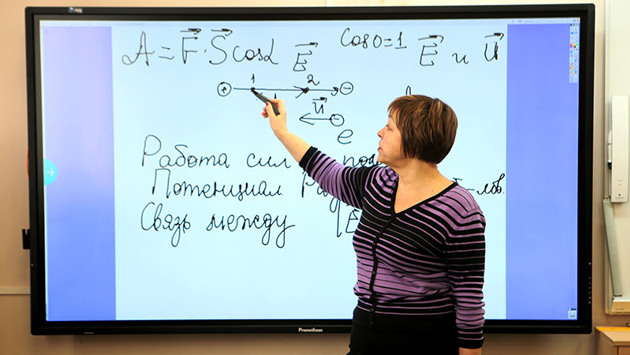 A = F⃗ · S⃗ cosα E⃗ cos0=1 E⃗ и U⃗
+ 1 2 −
U⃗ −
e
Работа сил
Потенциал
Связь между |E⃗
Promethean